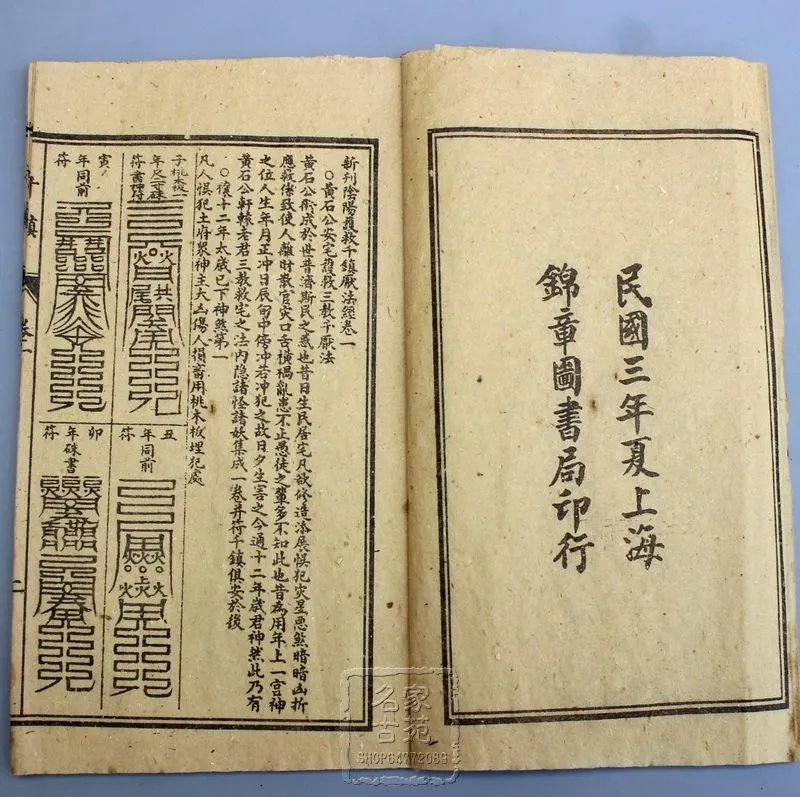 民國三年夏上海
錦章圖書局印行
新刋陰陽護救千鎮厭法經卷一
○黃石公安宅護救三教千厭法
黃石公術成於世普濟斯民之惑也昔日生民居宅凡欲修造添展悞犯灾星惡煞暗暗凶折
應殺係致使人離財散官灾口舌橫禍亂患不止愚徒之輩多不知此也昔為用年上一宫神
之位人生年月正冲日辰旬中傍冲若冲犯之故日夕生害之今通十二年歲君神煞此乃有
黃石公軒轅老君三教救宅之法内隱諸怪諸妖集成一卷并符千鎮俱安於後
○禳十二年太歲已下神煞第一
凡人悞犯土府衆神主大凶傷人損畜用桃木板埋犯處
子年
桃木板一尺二寸硃書埋
符
丑年同前符
寅年同前符
卯年硃書符
卷一
二
名家古苑
SHOP64772089